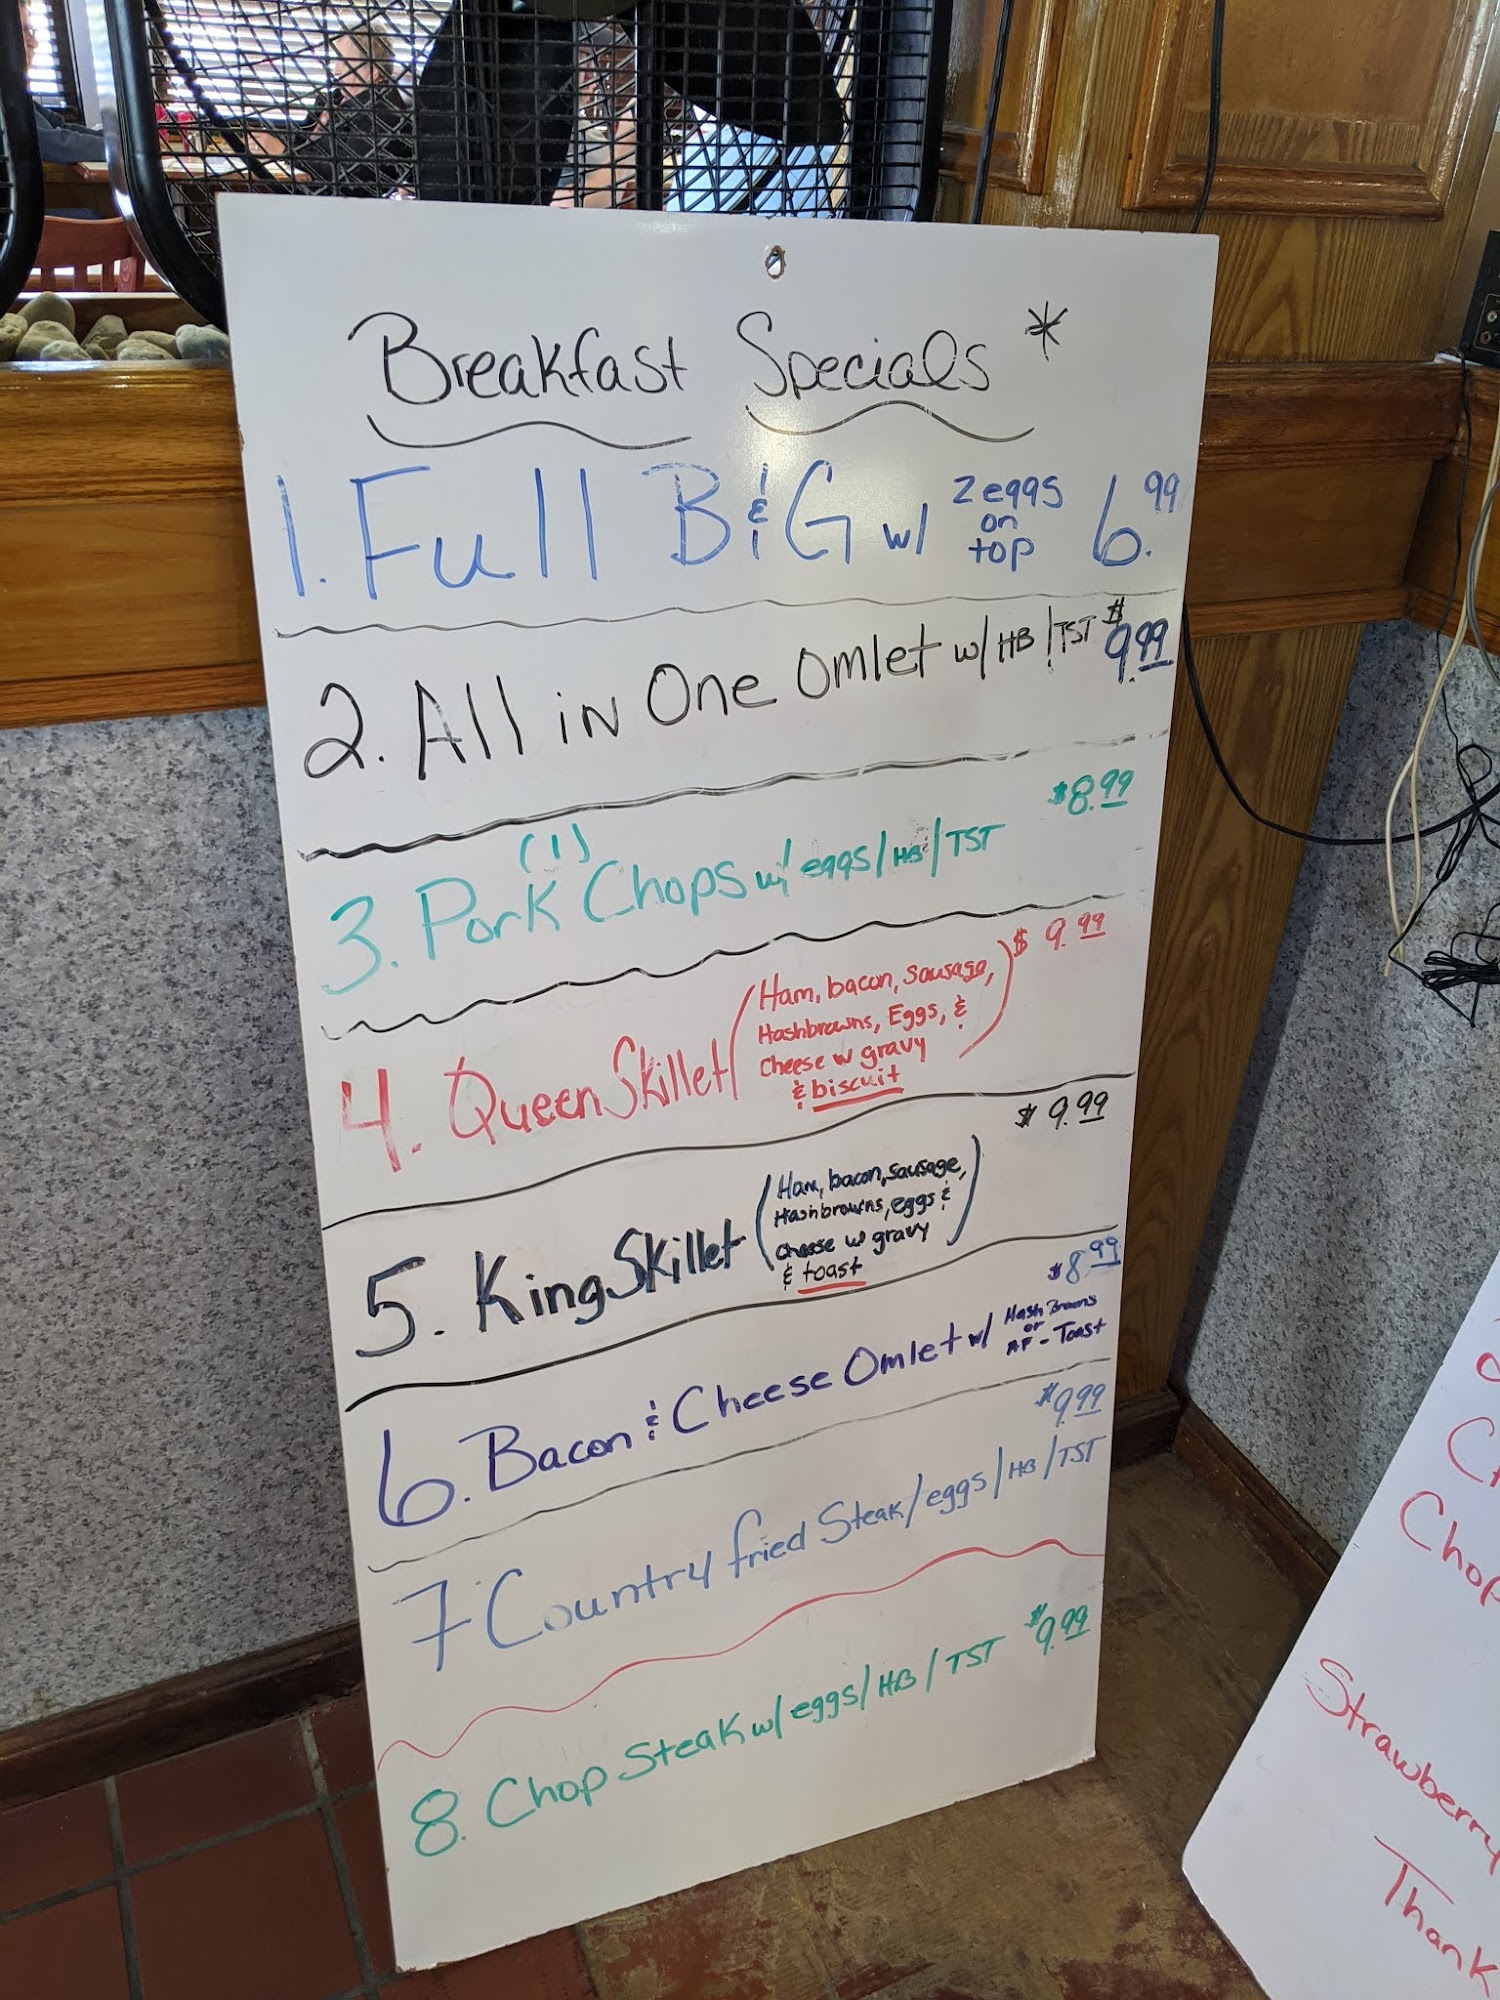 Breakfast Specials *
1. Full B & G w/ 2 eggs on top 6.99
2. All in One Omlet w/ HB / TST $9.99
3. Pork (1) Chops w/ eggs / HB / TST $8.99
4. Queen Skillet (Ham, bacon, sausage,
Hashbrowns, Eggs, &
cheese w gravy
& biscuit) $9.99
5. King Skillet (Ham, bacon, sausage,
Hashbrowns, eggs &
cheese w gravy
& toast) $9.99
6. Bacon & Cheese Omlet w/ Hash Browns or AF - Toast $8.99
7 Country fried Steak / eggs / HB / TST $9.99
8. Chop Steak w/ eggs / HB / TST $9.99
Strawberry
Thank